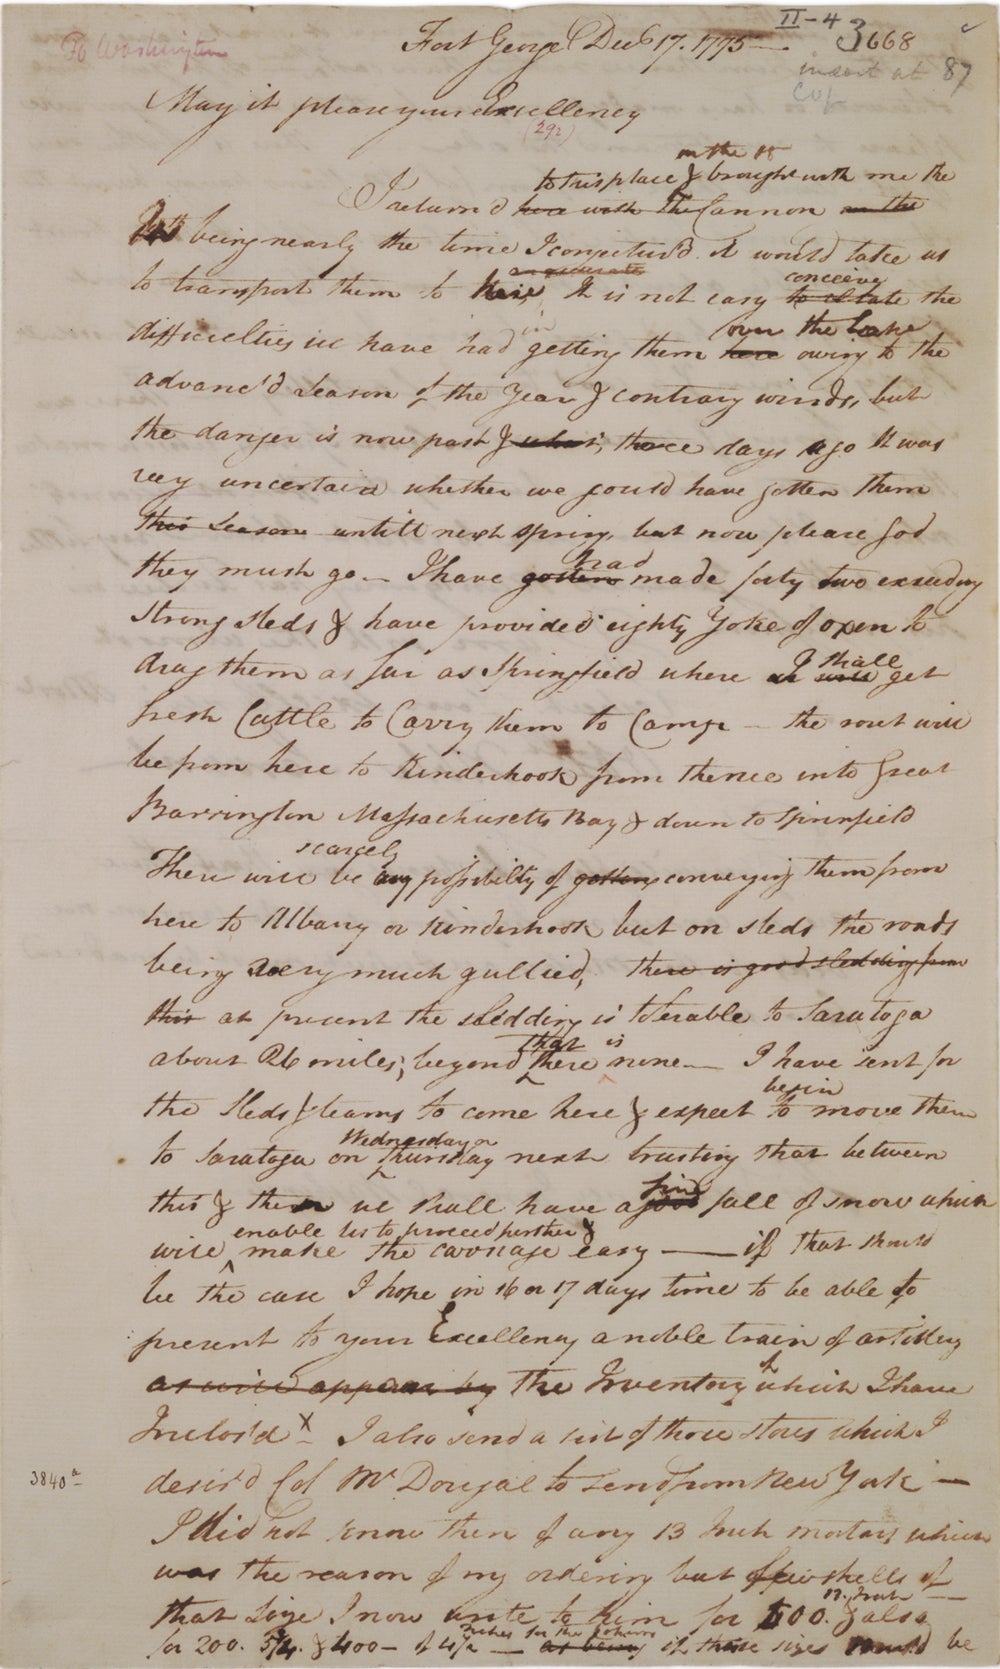 To Washington
II-4
3668
insert at 87
Fort George Decb 17. 1775 —
May it please your Excellency
(292)
on the 15
to this place & brought with me the
I return'd here with the Cannon on the
being nearly the time I conjectur'd it would take us
to transport them to here It is not easy conceive to state the
difficulties we have had in getting them over the Lake here owing to the
advanc'd Season of the Year & contrary winds, but
the danger is now past & three days ago It was
very uncertain whether we could have gotten them
this Season untill next spring, but now please god
they must go — I have gotten had made forty two exceeding
strong sleds & have provided eighty Yoke of oxen to
drag them as far as Springfield where I shall get
fresh Cattle to Carry them to Camp — the rout will
be from here to Kinderhook from thence into Great
Barrington Massachusetts Bay & down to Sprinfield
scarcely
There will be any possibilty of gotten conveying them from
here to Albany or Kinderhook but on sleds the roads
being very much gullied, there is good sledding from
this at present the sledding is tolerable to Saratoga
about 26 miles; beyond that there is none — I have sent for
the Sleds & teams to come here & expect to begin move them
to Saratoga on Wednesday or Thursday next trusting that between
this & then we shall have a good fine fall of snow which
will enable us to proceed further & make the carriage easy — if that should
be the case I hope in 16 or 17 days time to be able to
present to your Excellency a noble train of artillery
as will appear by the Inventory of which I have
Inclos'd X I also send a list of those stores which I
3840a
desir'd Col McDougal to send from New York —
I did not know then of any 13 Inch mortars which
was the reason of my ordering but few shells of
that Size I now write to him for 500. 13 Inch & also
for 200. 5 3/4. & 400 — of 4 1/2 — Inches for the Cohorns as being if these sizes should be